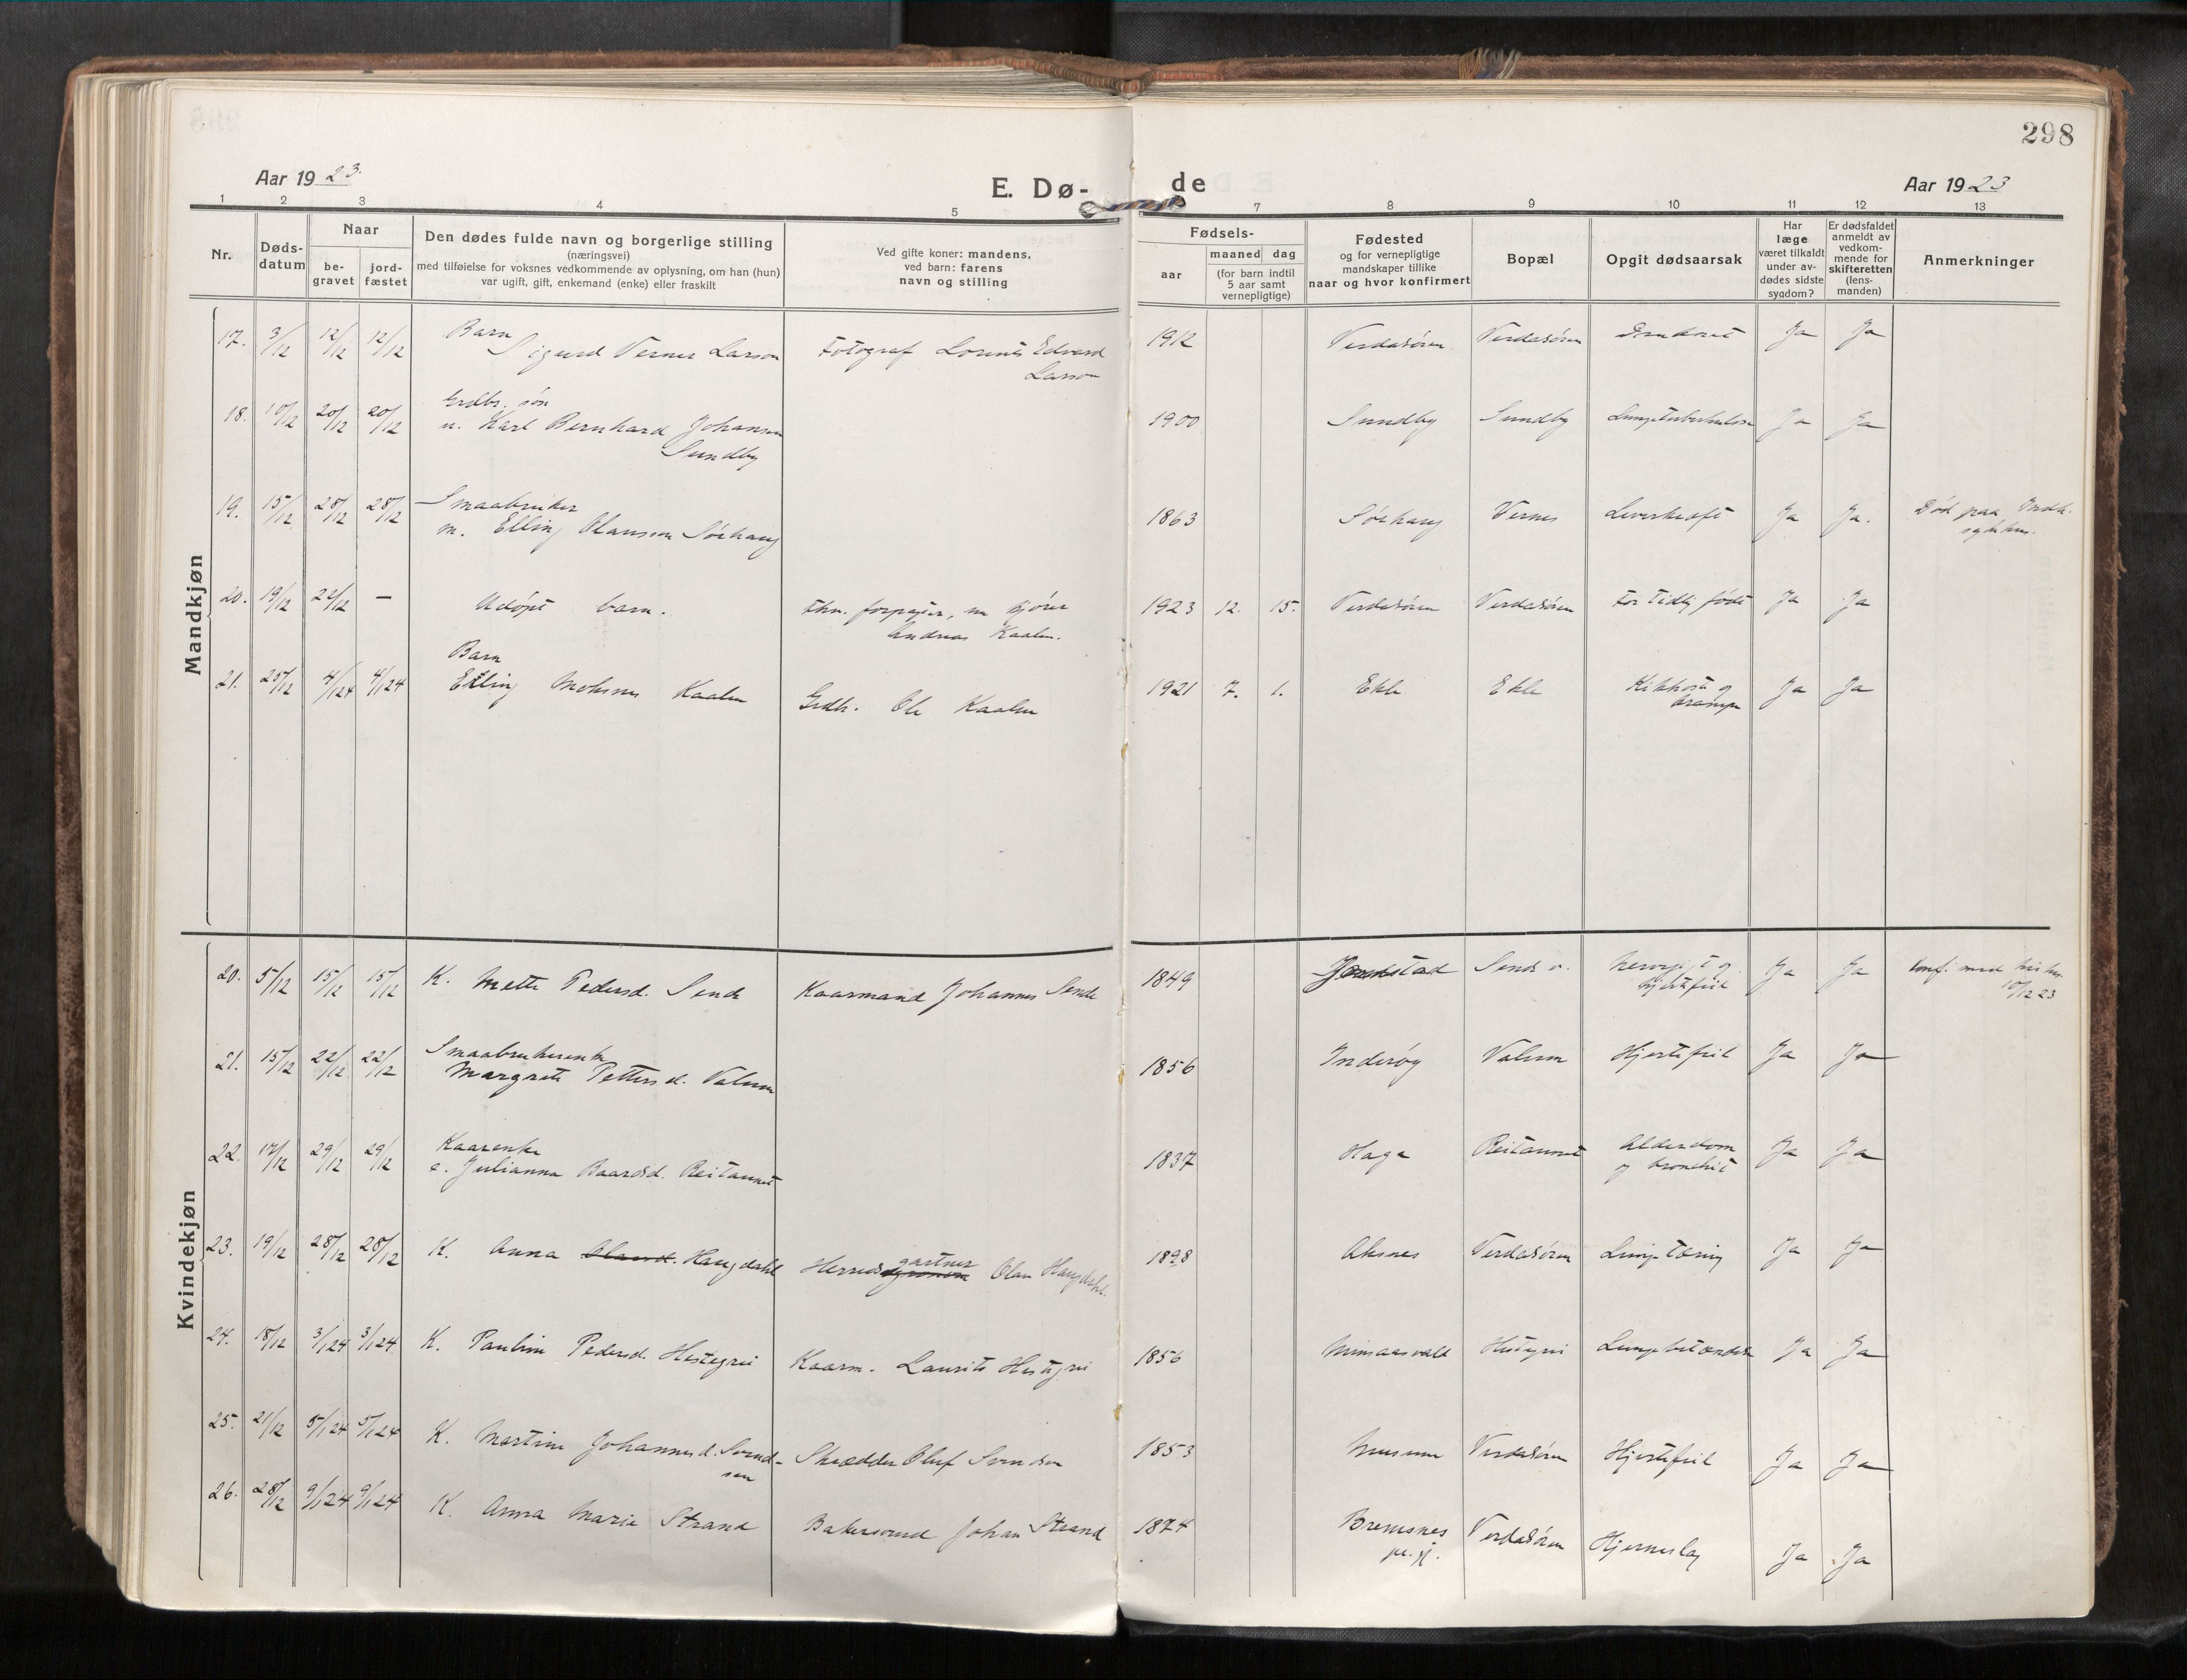 298
Aar 1923.
E. Dø-
de
Aar 1923
1 2 3 4 5 7 8 9 10 11 12 13
Nr.
Døds-
datum
Naar
be-
gravet
jord-
fæstet
Den dødes fulde navn og borgerlige stilling
(næringsvei)
med tilføielse for voksnes vedkommende av oplysning, om han (hun)
var ugift, gift, enkemand (enke) eller fraskilt
Ved gifte koner: mandens,
ved barn: farens
navn og stilling
Fødsels-
aar
maaned dag
(for barn indtil
5 aar samt
vernepligtige)
Fødested
og for vernepligtige
mandskaper tillike
naar og hvor konfirmert
Bopæl
Opgit dødsaarsak
Har
læge
været tilkaldt
under av-
dødes sidste
sygdom?
Er dødsfaldet
anmeldt av
vedkom-
mende for
skifteretten
(lens-
manden)
Anmerkninger
Mandkjøn
Barn
17. 3/12 12/12 12/12 Sigurd Verner Larson Fotograf Lorents Edvard 1912 Verdasøren Verdasøren Druknet Ja Ja
Larson
Grdbr. søn
18. 10/12 20/12 20/12 u. Karl Bernhard Johansen 1900 Sundby Sundby Lungetuberkulose Ja Ja
Sundby
Smaabruker
19. 15/12 28/12 28/12 m. Elling Olausson Sørhaug 1863 Sørhaug Vernes Leverkræft Ja Ja. Død paa Indh.
sykehus.
20. 19/12 22/12 — Udøpt barn. fhv. forpagter, nu kjører 1923 12. 15. Verdasøren Verdasøren For tidlig født Ja Ja
Andreas Kaalen.
Barn
21. 25/12 4/1 24 4/1 24 Elling Kaalen Grdb. Ole Kaalen 1921 7. 1. Ekle Ekle Kikhoste og Ja Ja
krampe
Kvindekjøn
20. 5/12 15/12 15/12 K. Mette Pedersd. Sende Kaarmand Johannes Sende 1849 Sende og Ja Ja
hjertefeil 10/12 23
Smaabrukerenke
21. 15/12 22/12 22/12 Margrete Pettersd. Valum 1856 Inderøy Valum Hjertefeil Ja Ja
Kaarenke
22. 17/12 29/12 29/12 e. Julianna Baardsd. Reitaunet 1837 Haga Reitaunet Alderdom Ja Ja
og bronchit
gartner
23. 19/12 28/12 28/12 K. Anna Haugdahl Herreds Olav Haugdahl. 1898 Aksnes Verdasøren Lungetæring Ja Ja
24. 18/12 3/1 24 3/1 24 K. Pauline Pedersd. Hestegrei Kaarm. Laurits Hestegrei 1856 Minsaasvald Hestegrei Lungebetændelse Ja Ja
25. 21/12 5/1 24 5/1 24 K. Martine Johannesd. Svend- Skrædder Oluf Svendsen 1853 Musum Verdasøren Hjertefeil Ja Ja
sen
26. 28/12 9/1 24 9/1 24 K. Anna Marie Strand Bakersvend Johan Strand 1874 Bremsnes Verdasøren Hjerneslag Ja Ja
pr.gj.